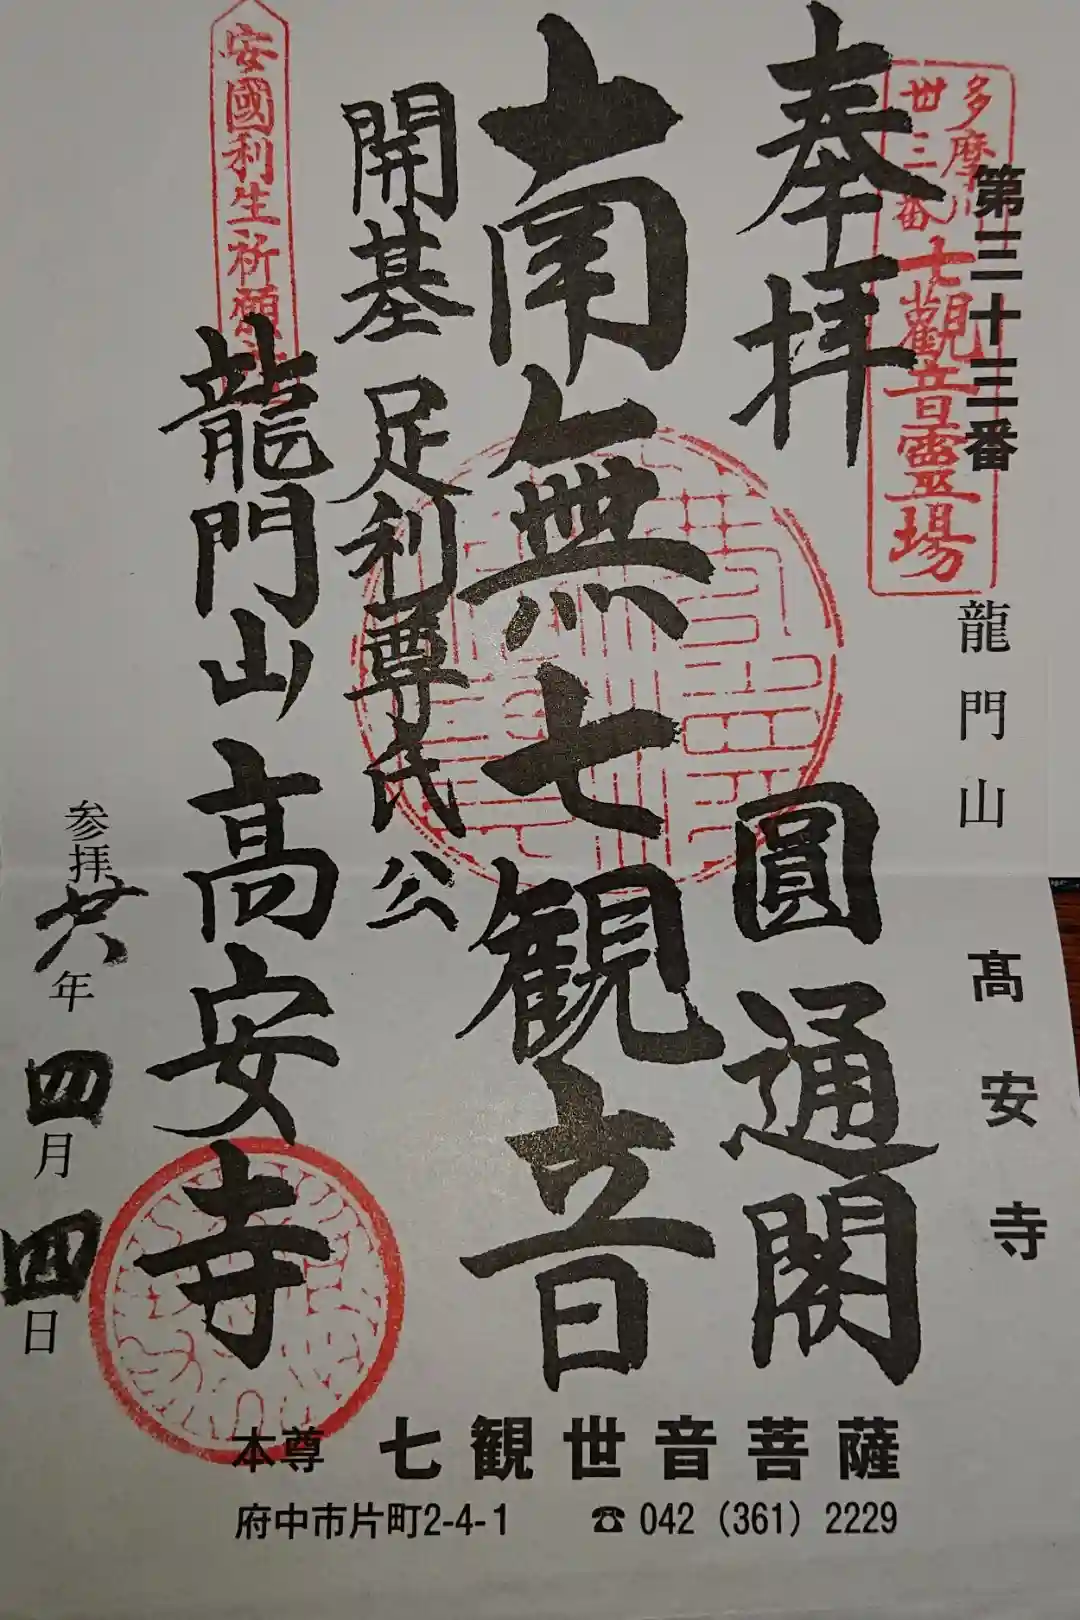 第三十三番
龍門山
髙安寺
多摩川
卅三番
七觀音靈場
奉拝
圓通閣
南無七観音
開基 足利尊氏公
安國利生祈願
龍門山高安寺
参拝廿八年
四月
四日
本尊 七観世音菩薩
府中市片町2-4-1 ☎ 042（361）2229